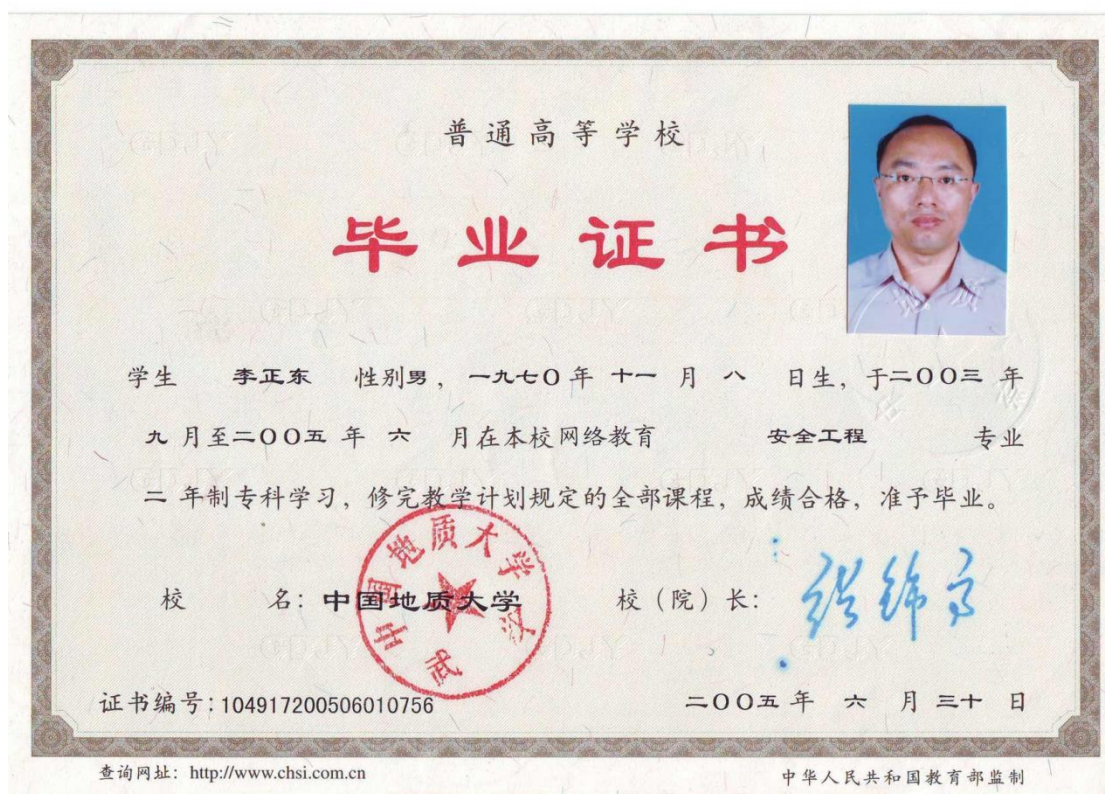 普通高等学校
毕业证书
学生 李正东 性别男，一九七〇年 十一 月 八 日生，于二〇〇三 年
九 月至二〇〇五 年 六 月在本校网络教育 安全工程 专业
二 年制专科学习，修完教学计划规定的全部课程，成绩合格，准予毕业。
校 名：中国地质大学 校（院）长：
中国地质大学
武汉
证书编号：104917200506010756 二〇〇五 年 六 月 三十 日
查询网址：http://www.chsi.com.cn 中华人民共和国教育部监制